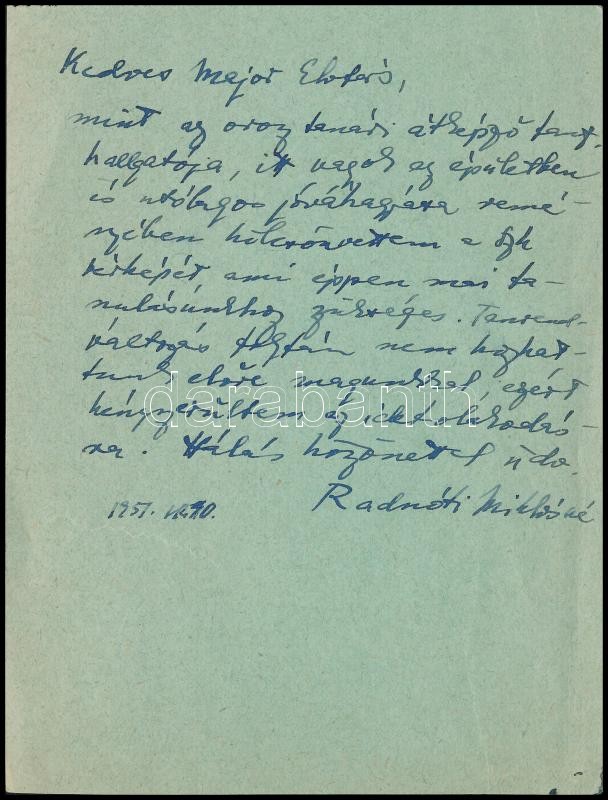 Kedves Major Elvtárs,
mint az orosz tanári átképző tanf.
hallgatója, itt vagyok az épületben
és utólagos jóváhagyása remé-
nyében kölcsönvettem a Szu
térképét ami éppen mai ta-
nulásunkhoz szükséges. Tanrend-
változás folytán nem hozhat-
tunk előre magunkkal, ezért
kényszerültem az
ra. Hálás köszönettel üdv.
Radnóti Miklósné
1951.
darabanth